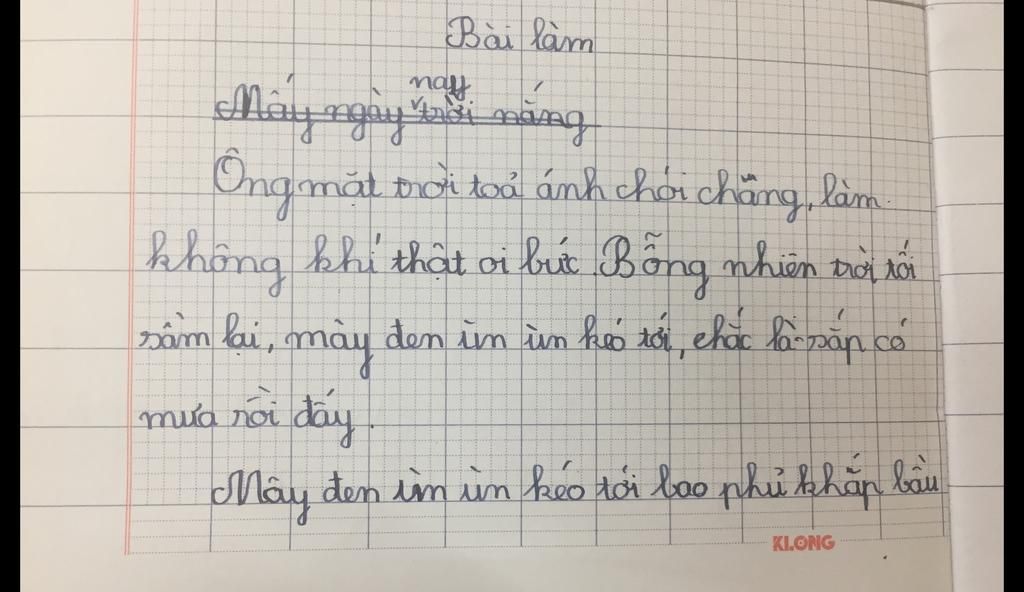 Bài làm
nay
Mấy ngày trời nắng
Ông mặt trời toả ánh chói chăng, làm
không khí thật oi bức. Bỗng nhiên trời tối
sầm lại, mây đen ùn ùn kéo tới, chắc là sắp có
mưa rồi đấy.
Mây đen ùn ùn kéo tới bao phủ khắp bầu
KLONG